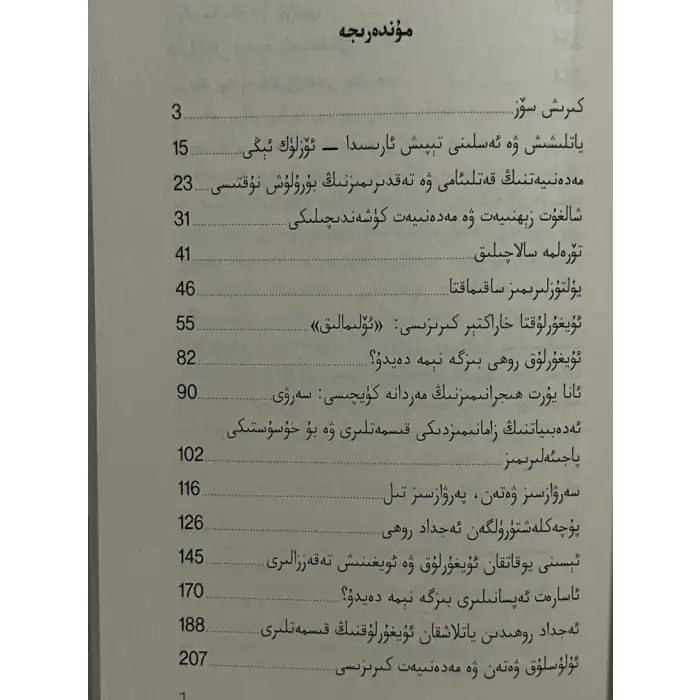 مۇندەرىجە
كىرىش سۆز 3
ياتلىشىش ۋە ئەسلىنى تېپىش ئارىسىدا — ئۆزلۈك ئېڭى 15
مەدەنىيەتنىڭ قەتلىئامى ۋە تەقدىرىمىزنىڭ بۇرۇلۇش نۇقتىسى 23
شالغۇت زېھنىيەت ۋە مەدەنىيەت كۈشەندىچىلىكى 31
تۆرەلمە سالاچىلىق 41
يۇلتۇزلىرىمىز ساقىماقتا 46
ئۇيغۇرلۇقتا خاراكتېر كىرىزىسى: «ئۆلىمالىق» 55
ئۇيغۇرلۇق روھى بىزگە نېمە دەيدۇ؟ 82
ئانا يۇرت ھىجرانىمىزنىڭ مەردانە كۈيچىسى: سەرۋى 90
ئەدەبىياتنىڭ زامانىمىزدىكى قىسمەتلىرى ۋە بۇ خۇسۇستىكى
پاجىئەلىرىمىز 102
سەرۋازسىز ۋەتەن، پەرۋازسىز تىل 116
پۇچەكلەشتۈرۈلگەن ئەجداد روھى 126
ئېسىنى يوقاتقان ئۇيغۇرلۇق ۋە ئويغىنىش تەقەززالىرى 145
ئاسارەت ئەپسانىلىرى بىزگە نېمە دەيدۇ؟ 170
ئەجداد روھىدىن ياتلاشقان ئۇيغۇرلۇقنىڭ قىسمەتلىرى 188
ئۇلۇسلۇق ۋەتەن ۋە مەدەنىيەت كىرىزىسى 207
1